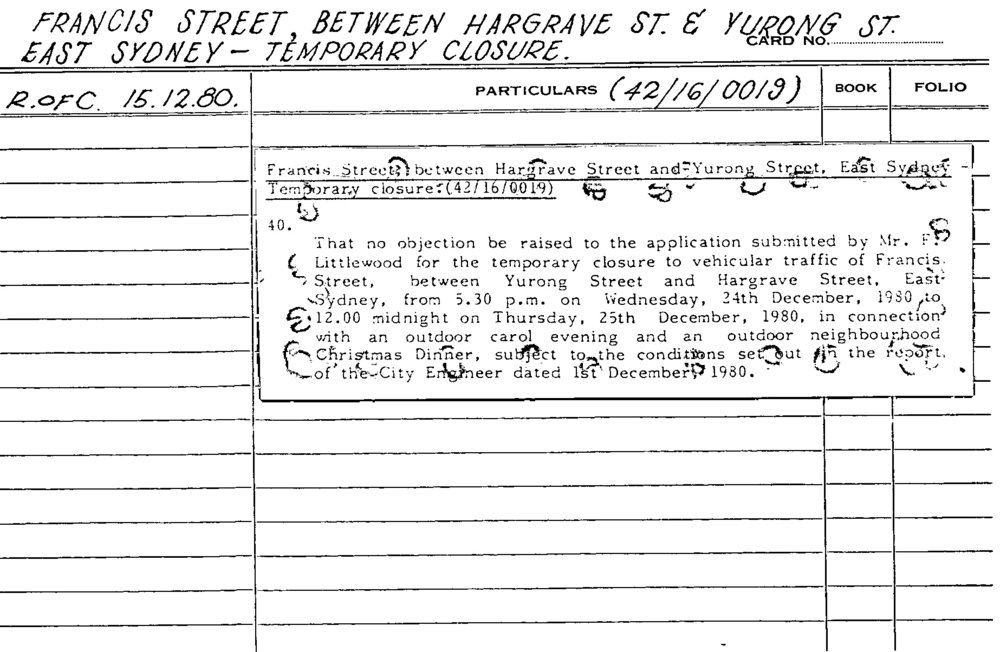 FRANCIS STREET, BETWEEN HARGRAVE ST. & YURONG ST.
CARD NO.
EAST SYDNEY – TEMPORARY CLOSURE.
R. OF C. 15.12.80.
PARTICULARS (42/16/0019)
BOOK
FOLIO
Francis Street, between Hargrave Street and Yurong Street, East Sydney -
Temporary closure (42/16/0019)
40.
That no objection be raised to the application submitted by Mr. F.
Littlewood for the temporary closure to vehicular traffic of Francis
Street, between Yurong Street and Hargrave Street, East
Sydney, from 5.30 p.m. on Wednesday, 24th December, 1980 to
12.00 midnight on Thursday, 25th December, 1980, in connection
with an outdoor carol evening and an outdoor neighbourhood
Christmas Dinner, subject to the conditions set out in the report
of the City Engineer dated 1st December, 1980.